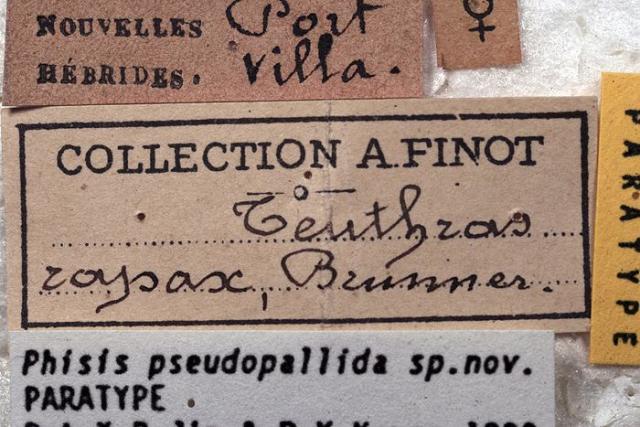 NOUVELLES Port
HÉBRIDES. Villa.
♀
COLLECTION A. FINOT
Teuthras
rapax, Brunner.
PARATYPE
Phisis pseudopallida sp.nov.
PARATYPE